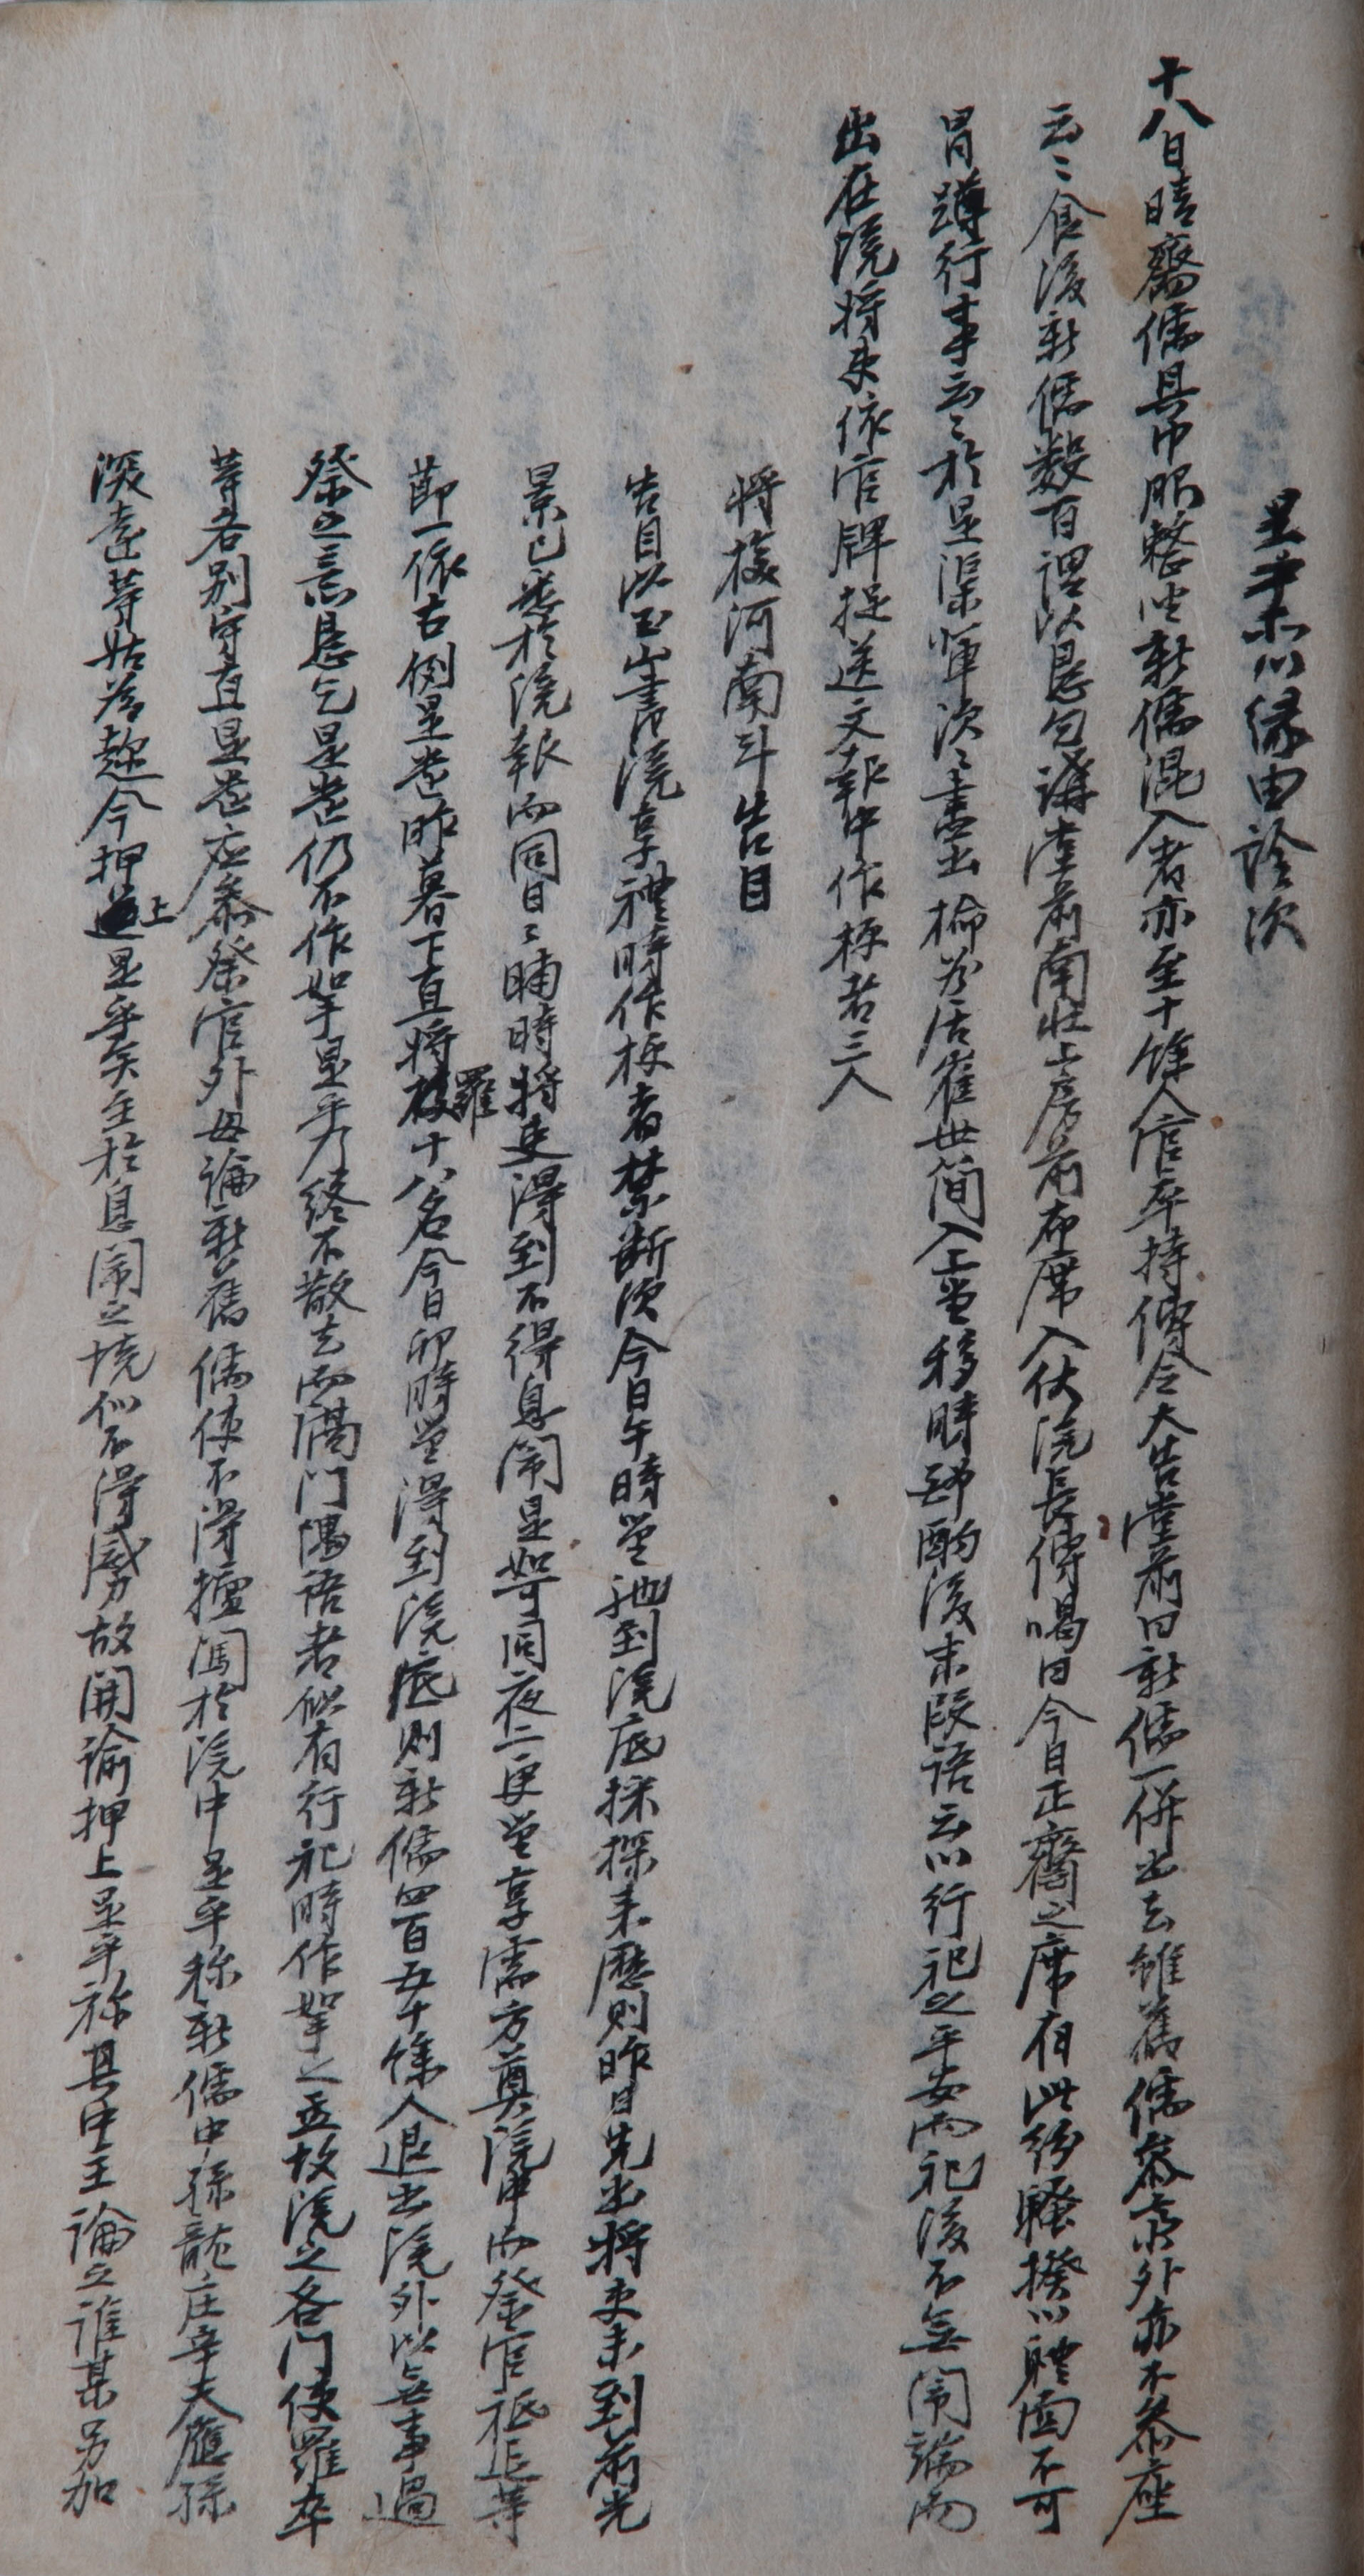 是乎示以緣由詮次
十八日晴齋儒具巾服整坐新儒混入者亦至十餘人官卒持傳令大告堂前曰新儒一併出去雖舊儒參祭外亦不參座
云〻食後新儒數百謂以恳乞講堂前南北上房前布席入伏院長傳喝曰今日正齋之席有此紛騷揆以體面不可
冒蹲行事云〻於是渠輩次〻盡出楡谷居崔世簡入上堂移時酬酌後末段語云以行祀之平安而祀後不無鬧端而
出在院將吏依官牌捉送文報中作梗者三人
將校河南斗告目
告目以玉山書院享禮時作梗者禁斷次今日午時量馳到院底探探來歷則昨日先出將吏未到前光
景已悉於院報而同日〻晡時將吏得到不得息鬧是如可同夜二更量享需方奠院中而祭官祗迎等
節一依古例是遣昨暮下直將校羅十八名今日卯時量得到院底則新儒四百五十餘人退出院外以無事過
祭之意恳乞是遣仍不作挐是乎乃終不散去而滿門隅語者似有行祀時作挐之並故院之各門使羅卒
等各別守直是遣應參祭官外毋論新舊儒使不得擅闖於院中是乎称新儒中孫龍庄辛大應孫
淏遠等姑爲趂今押上是乎矣至於息鬧之境似不得威勢故開諭押上是乎称其中主論之誰某另加